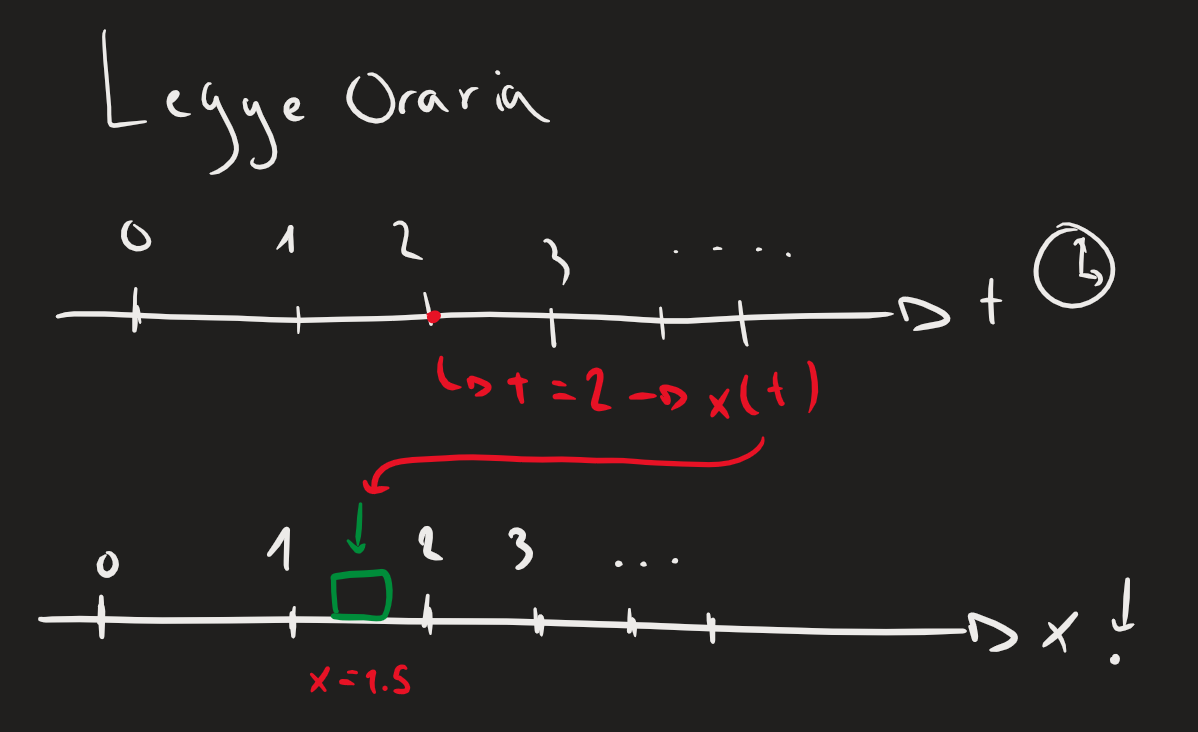 Legge Oraria
0 1 2 3 . . . . t
↳ t = 2 → x(t)
0 1 2 3 ... x
x = 1.5